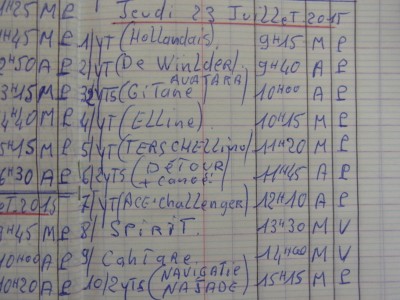 Jeudi 23 Juillet.2015
H25 M P
H45 M P 1/ YT (Hollandais) 9H15 M P
H50 A P 2/ YT (De Winlder). 9H40 A P
H15 A P 3/ 2YTS (Gitane AVATARA) 10H00 A P
H40 M P 4/ YT (Elline). 10H15 M P
H15 M P 5/ YT (TERSCHELLING) 11H20 M P
H30 A P 6/ 2YTS (DÉTOUR + canoë) 11H45 A P
ET.2015 7/ YT (ACE.challenger) 12H10 A P
H45 M P 8/ SPIRIT. 13H30 M V
10H00 A P 9/ 14H00 M V
10H20 A P 10/ 2YTS (NAVIGATIE NAJADE) 15H15 M P